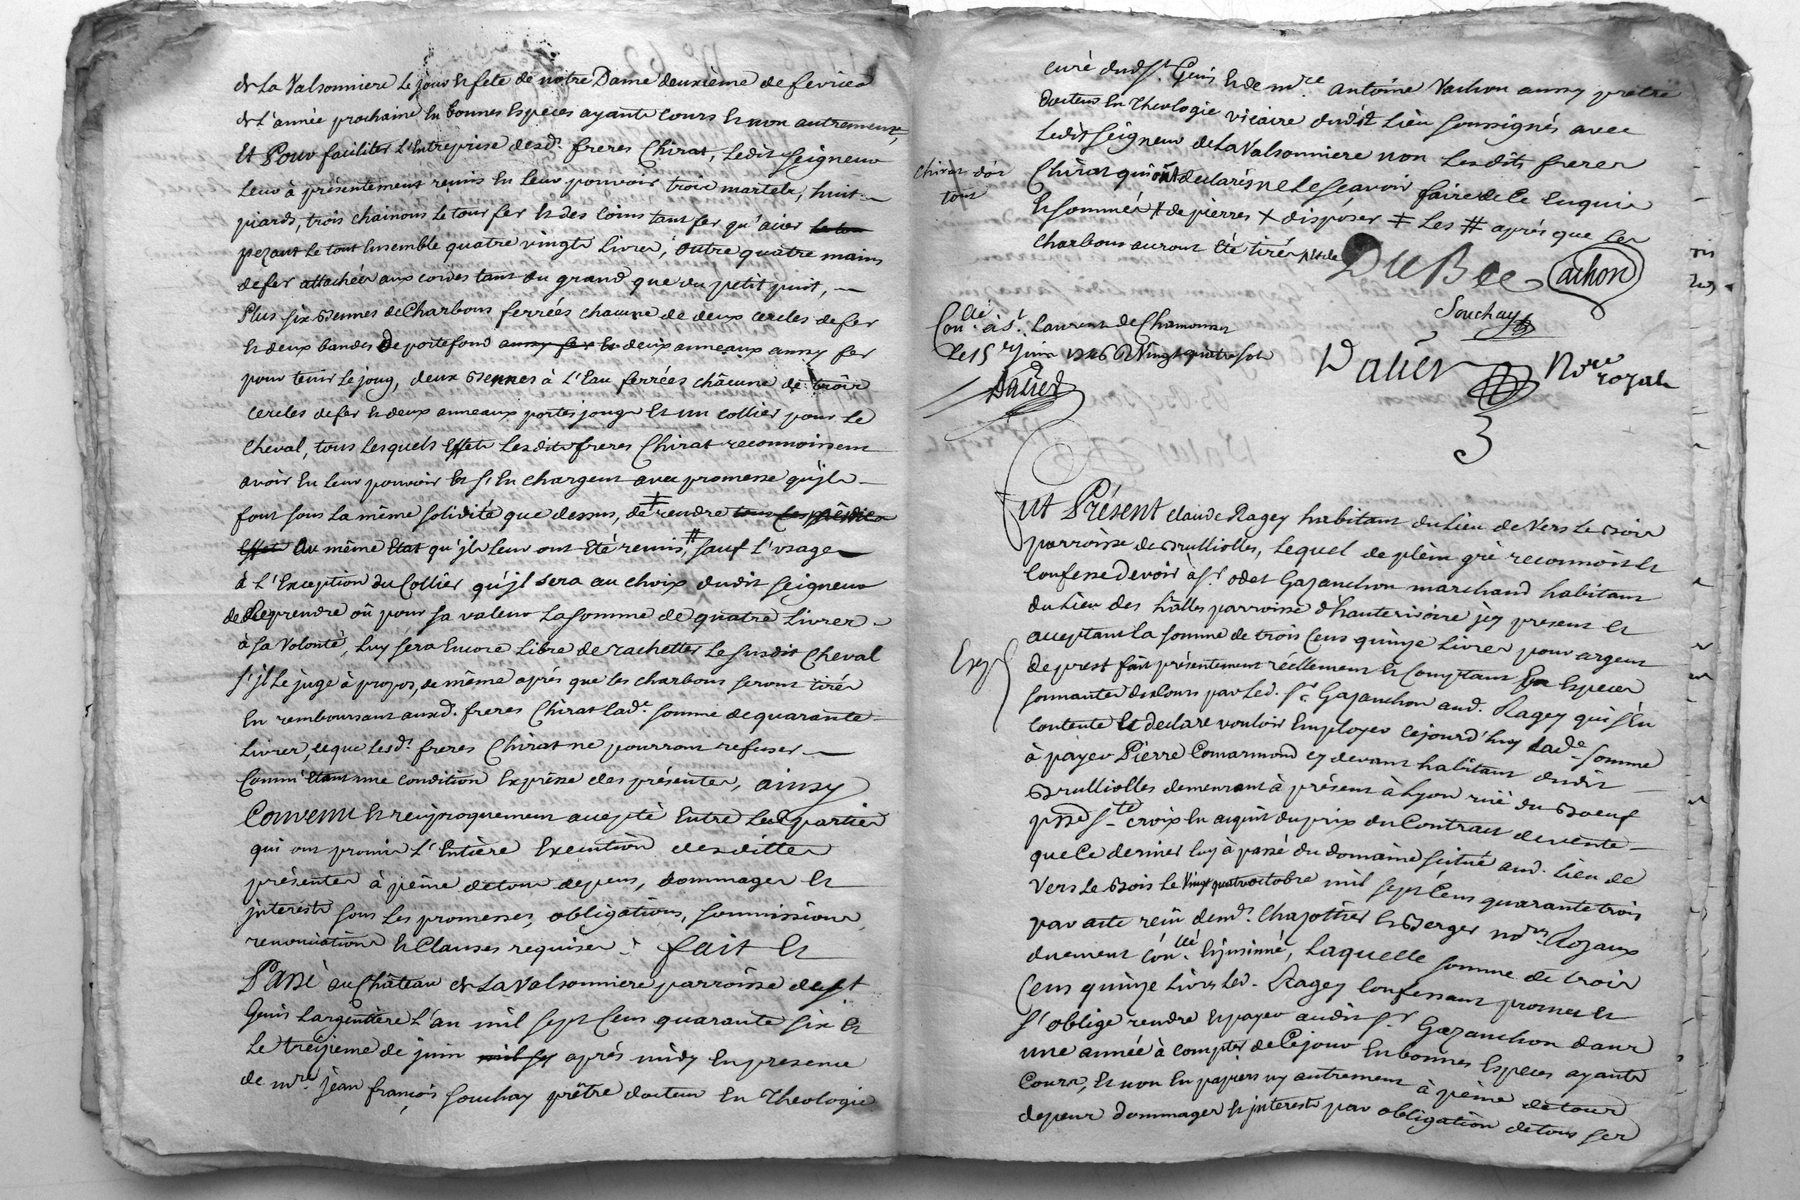 de La Valsonniere Le jour et fete de notre Dame deuxième de fevrier
de L'année prochaine En bonnes Especes ayants Cours et non autrement,
Et Pour faciliter L'Entreprise desd. freres Chirat, Ledit Seigneur
Leur à présentement remis En Leur pouvoir trois martels, huit
piards, trois chainons Le tour fer et des Coins tant fer qu'acier
pezant Le tout Ensemble quatre vingts Livres, outre quatre mains
de fer attachées aux cordes tant du grand que du petit puit,
Plus six Bennes de Charbons ferrées chacune de deux cercles de fer
et deux bandes de portefond aussy fer et deux anneaux aussy fer
pour tenir Le joug, deux Bennes à L'Eau ferrées châcune de trois
cercles de fer et deux anneaux portes jougs et un Collier pour Le
Cheval, tous Lesquels Effets Lesdits freres Chirat reconnoissent
avoir En Leur pouvoir et s'En chargent avec promesse qu'jls
font sous La même solidité que dessus, de ‡ rendre tous Les susdits
Effets au même Etat qu'jls Leur ont Eté remis, # sauf L'Usage
à L'Exception du Collier qu'jl sera au choix dudit Seigneur
de Reprendre où pour sa valeur La somme de quatre Livres
à Sa Volonté, Luy sera Encore Libre de rachetter Le susdit Cheval
s'jl Le juge à propos, de même après que Les charbons seront tirés
En remboursant auxd. freres Chirat Lad.e somme de quarante
Livres, ce que Lesd. freres Chirat ne pourront refuser
Comm'Etant une condition Expresse des présentes, ainsy
Convenu et reciproquement accepté Entre Lesd parties
qui ont promis L'Entière Execution desdittes
présentes à peine de tous depens, dommages et
jnterests sous Les promesses, obligations, soumissions
renonciations et Clauses requises. fait et
Passé au Château de La Valsonniere parroisse de St
Genis Largentiere L'an mil sept Cens quarante six et
Le treizieme de juin après midy En presence
de m.re jean françois Souchay prêtre docteur En Theologie
curé dud St. Genis et de m.re antoine Vachon aussy prêtre
docteur En Theologie vicaire dudit Lieu soussignés avec
Ledit Seigneur de La Valsonniere non Lesdits freres
Chirat qui ont declarés ne Le sçavoir faire de Ce Enquis
Et sommés ‡ de pierres X disposer ‡ Les # après que Les
charbons auront Eté tirés
Chirat doi
tout
DuBee
achon
Souchay
Con.lle à St. Laurent de Chamousset
Le 15.e juin 1746 R Vingt quatre sols
Dalier
Dalier
No.re royal
Fut Présent Claude Ragey habitant du Lieu de Vers Le Bois
parroisse de Brulliolles, Lequel de plein gré reconnoit et
Confesse devoir à S.r odet Gazanchon marchand habitant
du Lieu des halles parroisse d'hauterivoire jcy present et
acceptant La somme de trois Cens quinze Livres pour argent
de prest fait présentement réellement et Comptant En Especes
sonnantes du Cours par Led. S.r Gazanchon aud. Ragey qui s'En
Contente Et declare vouloir Employer cejourd'huy Lad.e somme
à payer Pierre Comarmond cy devant habitant dudit
Brulliolles demeurant à présent à Lyon rüe du Boeuf
prsse S.te Croix En acquit du prix du Contrat de vente
que Ce dernier Luy à passé du domaine scitué aud. Lieu de
Vers Le Bois Le Vingt quatre octobre mil sept Cens quarante trois
par acte reçu de m.e Chazottier Et Berger no.res Royaux
duement Con.llé Et jnsinué, Laquelle somme de trois
Cens quinze Livres Led. Ragey Confessant promet et
s'oblige rendre Et payer audit S.r Gazanchon dans
une année à compter de Cejour En bonnes Especes ayants
Cours, et non En papiers ny autrement à peine de tous
depens dommages et jnterests par obligation de tous ses
Exp